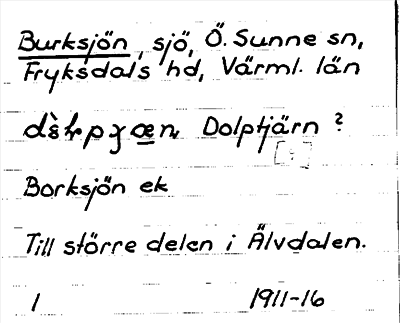 Burksjön, sjö, Ö. Sunne sn,
Fryksdals hd, Värml. län
Dolptjärn ?
[?]
Borksjön ek
Till större delen i Älvdalen.
1 1911-16